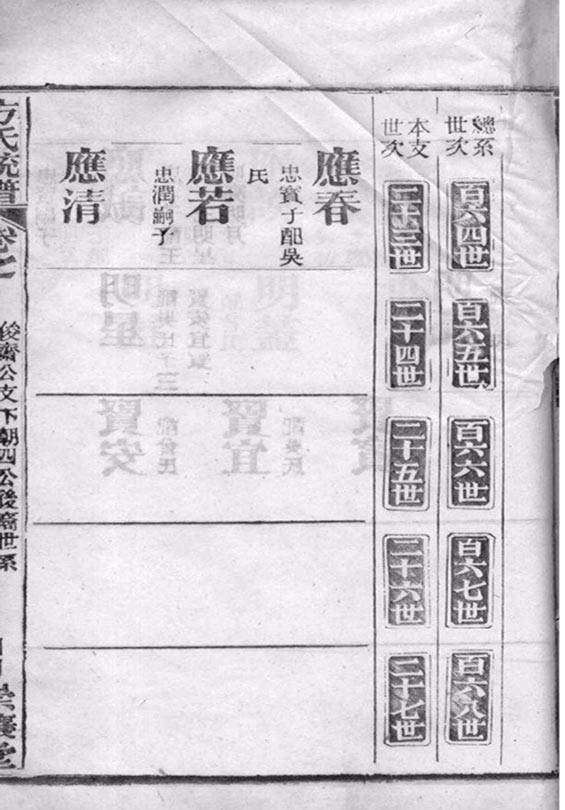 總系
世次
百六四世
百六五世
百六六世
百六七世
百六八世
本支
世次
二十三世
二十四世
二十五世
二十六世
二十七世
應春
忠寶子配吳
氏
應若
忠潤嗣子
應清
方氏統譜
俊齋公支下朝四公後裔世系